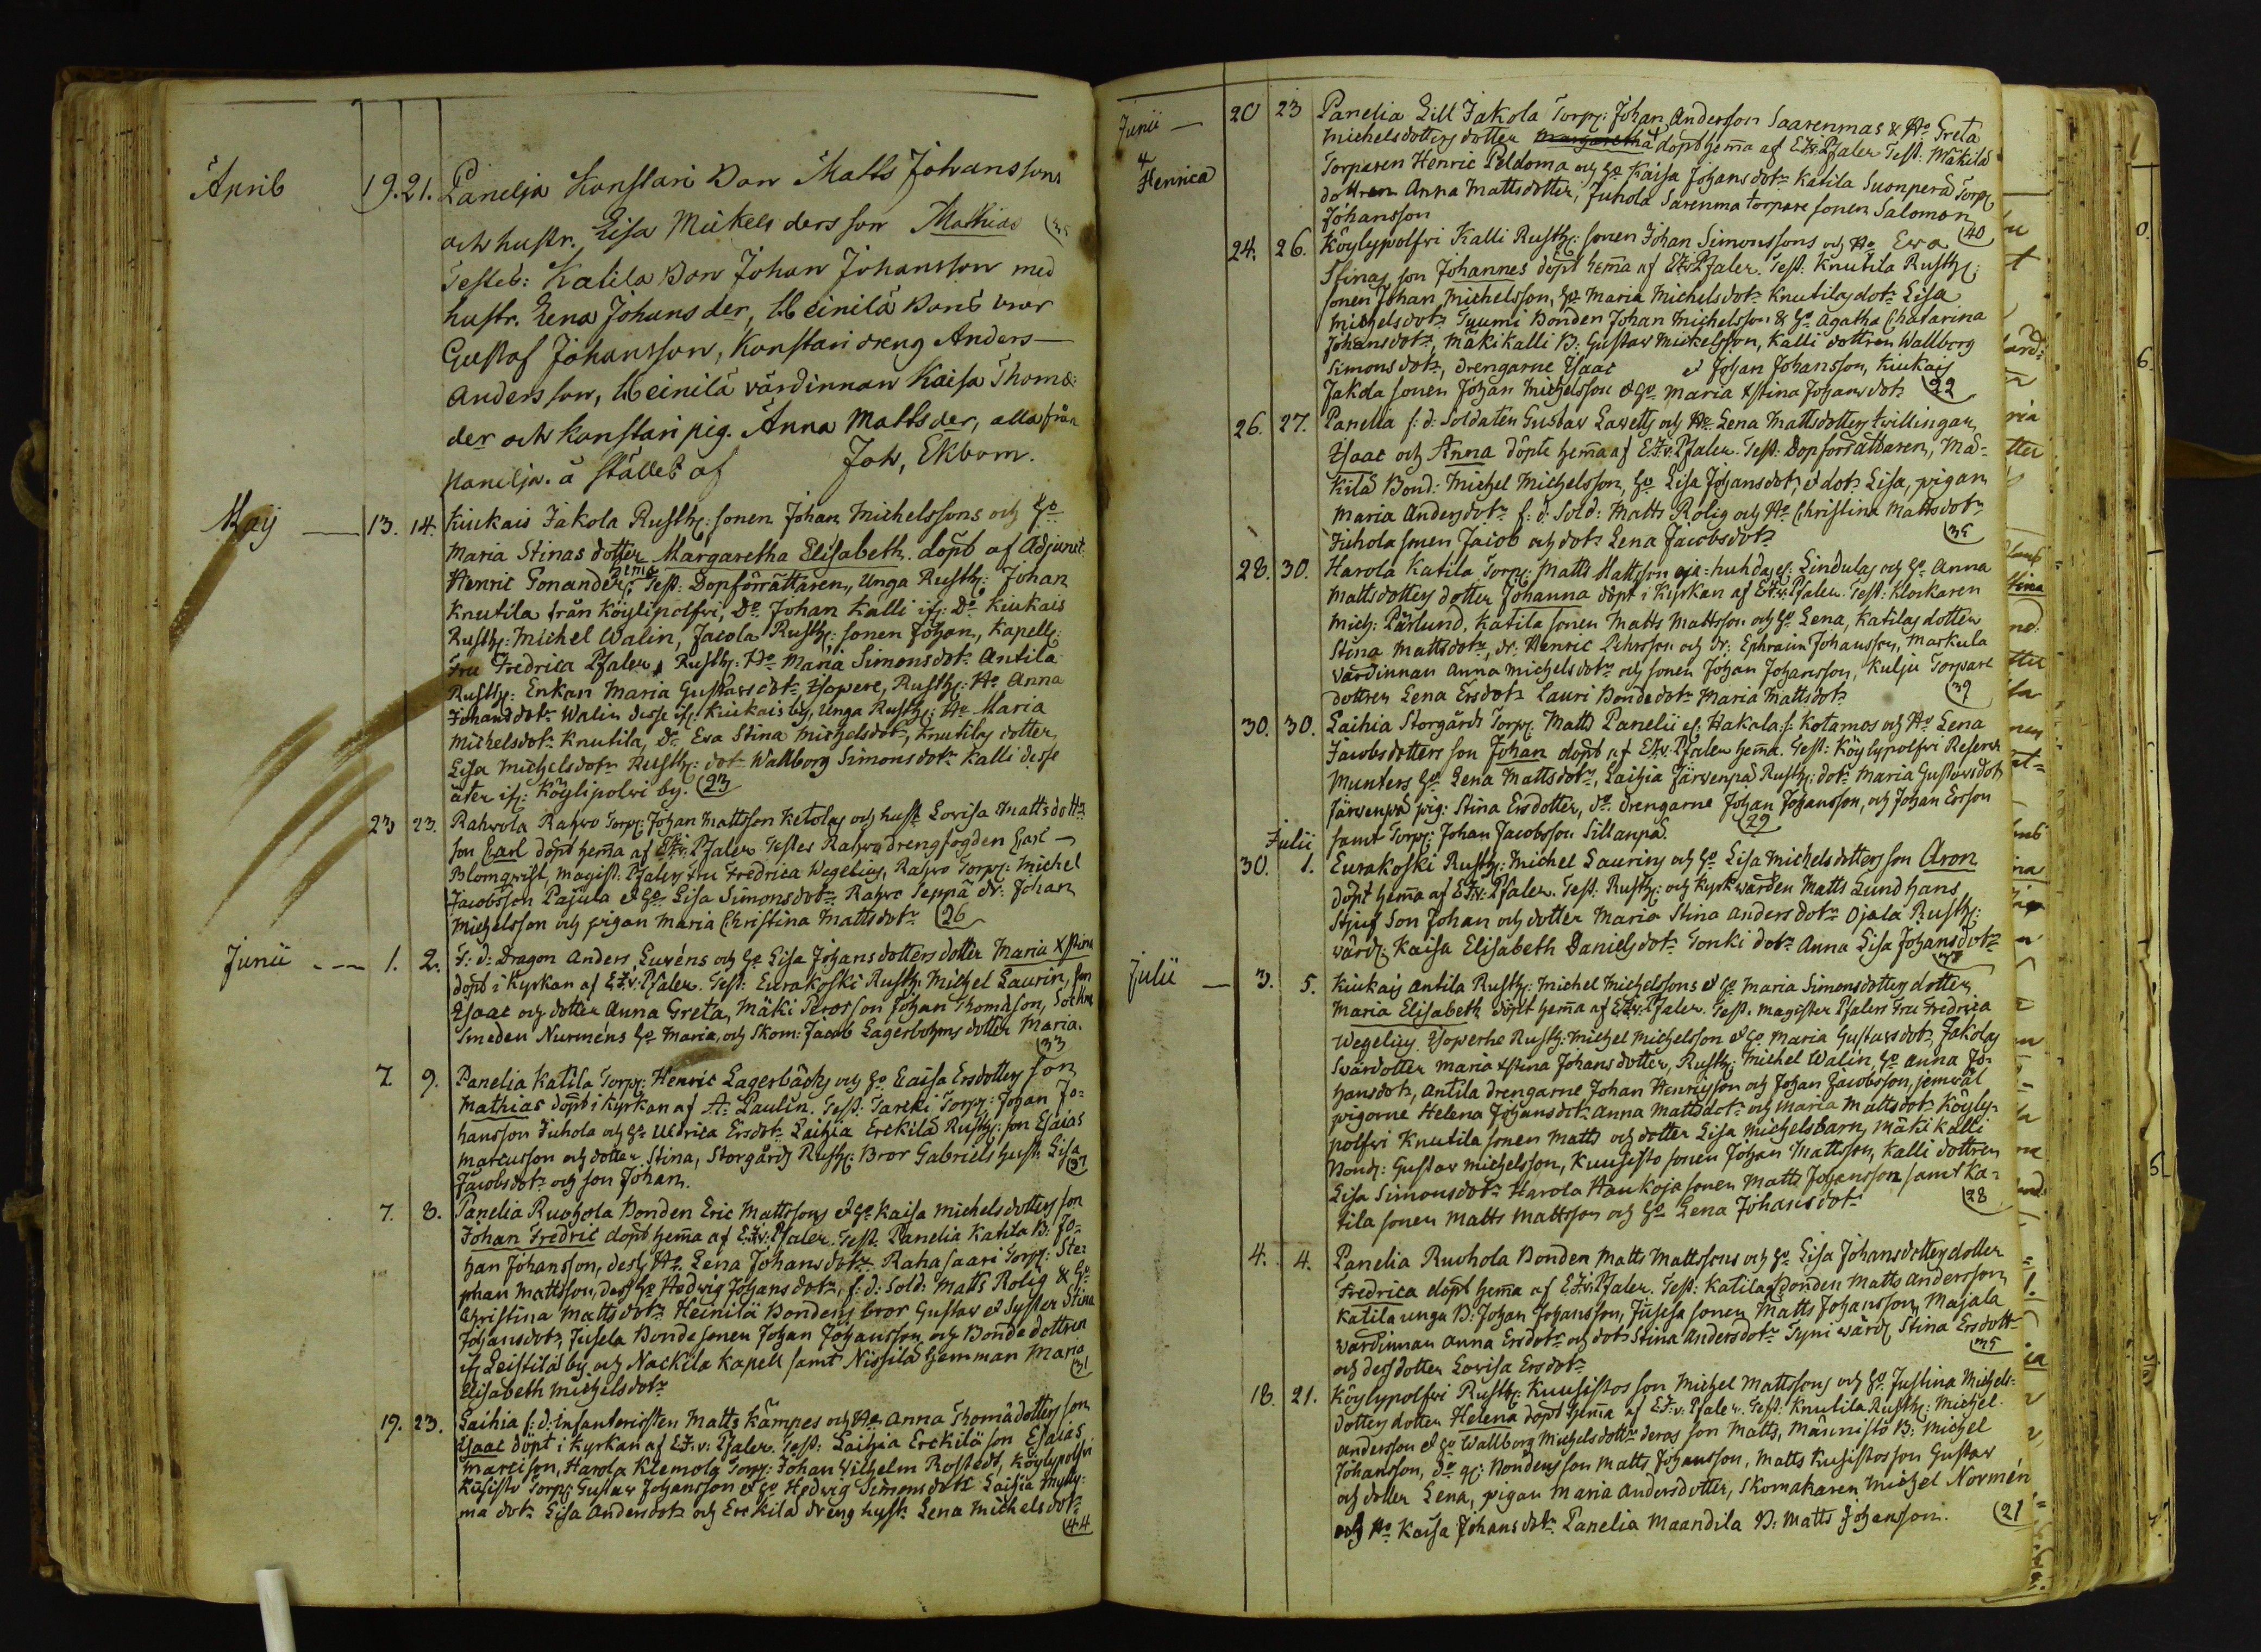 April 19. 21. Panelja Konstari Bon Matts Johanssons
och hustr. Lisa Mickels ders son Mathias
Testes: Katila Bon Johan Johansson med
hustr. Lena Johans der, Heinilä Bons bror
Gustaf Johansson, Konstari dreng Anders
Andersson, Heinilä värdinnan Kaisa Thoms:
der och Konstari pig. Anna Matts der, alla från
Panelja. å stället af Joh, Ekbom.
Maij 13. 14. Kiukais Jakola Rusth: sonen Johan Michelssons och Ho
Maria Stinas dotter Margaretha Elisabeth döpt af Adjunct
Henric Gonander hema Test: Dopförrättaren, Unga Rusth: Johan
Knutila från Köylipolfri, Do Johan Kalli if: Do Kiukais
Rusth: Michel Walin, Jacola Rusth: sonen Johan, Kapell:
Fru Fredrica Pfaler, Rusth: Ho Maria Simonsdotr Antila
Rusth: Enkan Maria Gustavsdotr Ylopere, Rusth: Ho Anna
Johansdotr Walin desse if: Kiukais by, Unga Rusth: Ho Maria
Michelsdotr Knutila, Do Eva Stina Michelsdotr, Knutilas dotter
Lisa Michelsdotr Rusth: dotr Wallborg Simonsdotr Kalli desse
åter if: Köylipolvi by. (23
23 23. Rahvola Rahvo Torp: Johan Mattsson Ketolas och hustr Lovisa Mattsdottrs
son Carl döpt hema af E.F.v.Pfaler Testes Rahvo drengfogden Carl
Blomqvist, Magist: Pfalers Fru Fredrica Wegelius, Rahvo Torp: Michel
Jacobsson Pajula et Ho Lisa Simonsdotr Rahvo Seppä dr: Johan
Michelsson och pigan Maria Christina Mattsdotr (26
Junii 1. 2. F: d: Dragon Anders Luréns och Ho Lisa Johansdotters dotter Maria Xstina
döpt i Kyrkan af E.F.v:Pfaler. Test: Eurakoski Rusth: Michel Laurin, son
Isaac och dotter Anna Greta, Mäki Peros son Johan Thomasson, Sockne
Smeden Nurméns Ho Maria, och Skom: Jacob Lagerbohms dotter Maria.
(33
7. 9. Panelia Katila Torp: Henric Lagerbäcks och Ho Caisa Ersdotters son
Mathias döpt i Kyrkan af A: Paulin. Test: Tareki Torp: Johan Jo=
hansson Juhola och Ho Uldrica Ersdotr Laihia Erckilä Rusth: son Esaias
Marcusson och dotter Stina, Storgårds Rusth: Bror Gabriels hustr Lisa
Jacobsdotr och son Johan. (37
7. 8. Panelia Ruohola Bonden Eric Mattssons et Ho Kaisa Michelsdotters son
Johan Fredric döpt hema af E.F.v:Pfaler. Test: Panelia Katila B: Jo=
han Johansson, dess Ho Lena Johansdotr Rahasaari Torp: Ste=
phan Mattsson, dess Ho Hedvig Johansdotr, f: d: Sold: Matts Rolig & Ho
Christina Mattsdotr Heinilä Bondens bror Gustav et Syster Stina
Johansdotr, Jusela Bondesonen Johan Johansson och Bondedottren
if: Leistilä by och Nackila Kapell samt Nissilä hemman Maria
Elisabeth Michelsdotr (31
19. 23. Laihia f: d: Infanteristen Matts Kämpes och Ho Anna Thomädotters son
Isaac döpt i Kyrkan af E.F.v:Pfaler. Test: Laihia Erckilä son Esaias
Marcisson, Harola Klemola Torp: Johan Wilhelm Rostedt, Köylypolfri
Kusisto Torp: Gustav Johansson et Ho Hedvig Simonsdotr Laihia Mylly=
ma dotr Lisa Andersdotr och Erckilä dreng hustr Lena Michelsdotr
(44
Junii 20 23 Panelia Lill Jakola Torp: Johan Andersson Saarenmas & Ho Greta
4 Henrica
Michelsdotters dotter Margaretha döpt hema af E.F.v:Pfaler Test: Mäkilä
Torparen Henric Peldoma och Ho Kaisa Johansdotr Katila Suonperä Torp:
dottren Anna Mattsdotter, Juhola Sarenma torpare sonen Salomon
Johansson (40
24. 26. Köylypolfri Kalli Rusth: sonen Johan Simonssons och Ho Eva
Stinas son Johannes döpt hema af E.F.v:Pfaler. Test: Knutila Rusth:
sonen Johan Michelsson, Ho Maria Michelsdotr Knutilas dotr Lisa
Michelsdotr Tyumi Bonden Johan Michelsson & Ho Agatha Chatarina
Johansdotr, Mäkikalli B: Gustav Mickelsson, Kalli dottren Wallborg
Simonsdotr, drengarne Isaac et Johan Johansson, Kiukais
Jakola sonen Johan Michelsson et Ho Maria Xstina Johansdotr (22
26. 27. Panelia f: d: Soldaten Gustav Lavetts och Ho Lena Mattsdotters twillingar
Isaac och Anna döpte hema af E.F.v:Pfaler. Test: Dopförrättaren, Mä=
kilä Bond: Michel Michelsson, Ho Lisa Johansdotr, et dotr Lisa, pigan
Maria Andersdotr f: d: Sold: Matts Rolig och Ho Christina Mattsdotr
Juhola sonen Jacob och dotr Lena Jacobsdotr (35
28. 30. Harola Katila Torp: Matts Mattsson Lindulas och Ho Anna
Mattsdotters dotter Johanna döpt i Kyrkan af E.F.v:Pfaler. Test: Klockaren
Mich: Pärlund, Katila sonen Matts Mattsson och Ho Lena, Katilas dotter
Stina Mattsdotr, dr: Henric Pehrsson och dr: Ephraim Johansson, Markula
värdinnan Anna Michelsdotr och sonen Johan Johansson, Kulju Torpare
dottren Lena Ersdotr Lauri Bondedotr Maria Mattsdotr (39
30. 30. Laihia Storgårds Torp: Matts Panelii el: Hakala f: Kotamos och Ho Lena
Jacobsdotters son Johan döpt af E.F.v:Pfaler hema. Test: Köylypolfri Reserv
Munters Ho Lena Mattsdotr, Laihia Järvenpä Rusth: dotr Maria Gustavsdotr
Järvenpä pig: Stina Ersdotter, do drengarne Johan Johansson, och Johan Ersson
samt Torp: Johan Jacobsson Sillanpä. (29
Julii
30. 1. Eurakoski Rusth: Michel Laurins och Ho Lisa Michelsdotters son Aron
döpt hema af E.F.v:Pfaler. Test. Rusth: och Kyrkvärden Matts Lund hans
Stjuf Son Johan och dotter Maria Stina Andersdotr Ojala Rusth:
värd: Kaisa Elisabeth Danielsdotr Tonki dotr Anna Lisa Johansdotr
Julii 3. 5. Kiukais Antila Rusth: Michel Michelssons et Ho Maria Simonsdotters dotter
Maria Elisabeth döpt hema af E.F.v:Pfaler. Test. Magister Pfalers Fru Fredrica
Wegelius Yloperhe Rusth: Michel Michelsson et Ho Maria Gustavsdotr, Jakolas
Svärdotter Maria Xstina Johansdotter, Rusth: Michel Walin, Ho Anna Jo=
hansdotr, Antila drengarne Johan Henricsson och Johan Jacobsson, jemväl
pigorne Helena Johansdotr Anna Mattsdotr och Maria Mattsdotr Köyly=
polfvi Knutila sonen Matts och dotter Lisa Michelsbarn, Mäki Kalli
Bond: Gustav Michelsson, Kuusisto sonen Johan Mattsson, Kalli dottren
Lisa Simonsdotr Harola Haukoja sonen Matts Johansson samt Ka=
tila sonen Matts Mattsson och Ho Lena Johansdotr (28
4. 4. Panelia Ruohola Bonden Matts Mattssons och Ho Lisa Johansdotters dotter
Fredrica döpt hema af E.F.v:Pfaler. Test: Katilas Bonden Matts Andersson
Katila unga B: Johan Johansson, Jusela sonen Matts Johansson, Majala
värdinnan Anna Ersdotr och dotr Stina Andersdotr Tyni värd: Stina Ersdottr
och dess dotter Lovisa Ersdotr (35
18. 21. Köylypolfvi Rusth: Kuusistos son Michel Mattssons och Ho Justina Michels=
dotters dotter Helena döpt hema af E.F.v.Pfaler. Test: Knutila Rusth: Michel
Andersson et Ho Wallborg Michelsdottr deras son Matts, Männistö B: Michel
Johansson, do Bondens son Matts Johansson, Matts Kusistos son Gustav
och dotter Lena, pigan Maria Andersdotter, Skomakaren Michel Normén
och Ho Kaisa Johansdotr Panelia Maandila B: Matts Johansson. (21